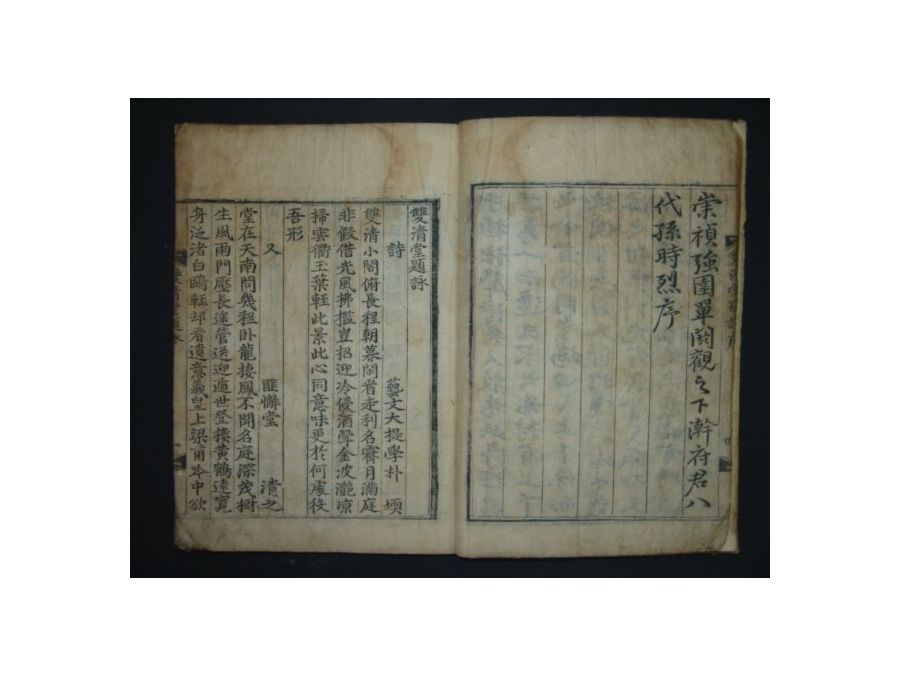 崇禎強圉單閼觀之下澣府君八
代孫時烈序
雙清堂題詠
詩 藝文大提學朴堧
雙清小閣俯長程朝暮閒看走利名霽月滿庭
非假借光風拂檻豈招迎冷侵酒斝金波灩凉
掃雲衢玉葉輕此景此心同意味更於何處役
吾形
又 匪懈堂 清之
堂在天南問幾程臥龍棲鳳不聞名庭深茂樹
生風雨門壓長途管送迎遁世登樓黃鶴遠寬
身泛渚白鷗輕却看遺意羲皇上梁甫吟中欲